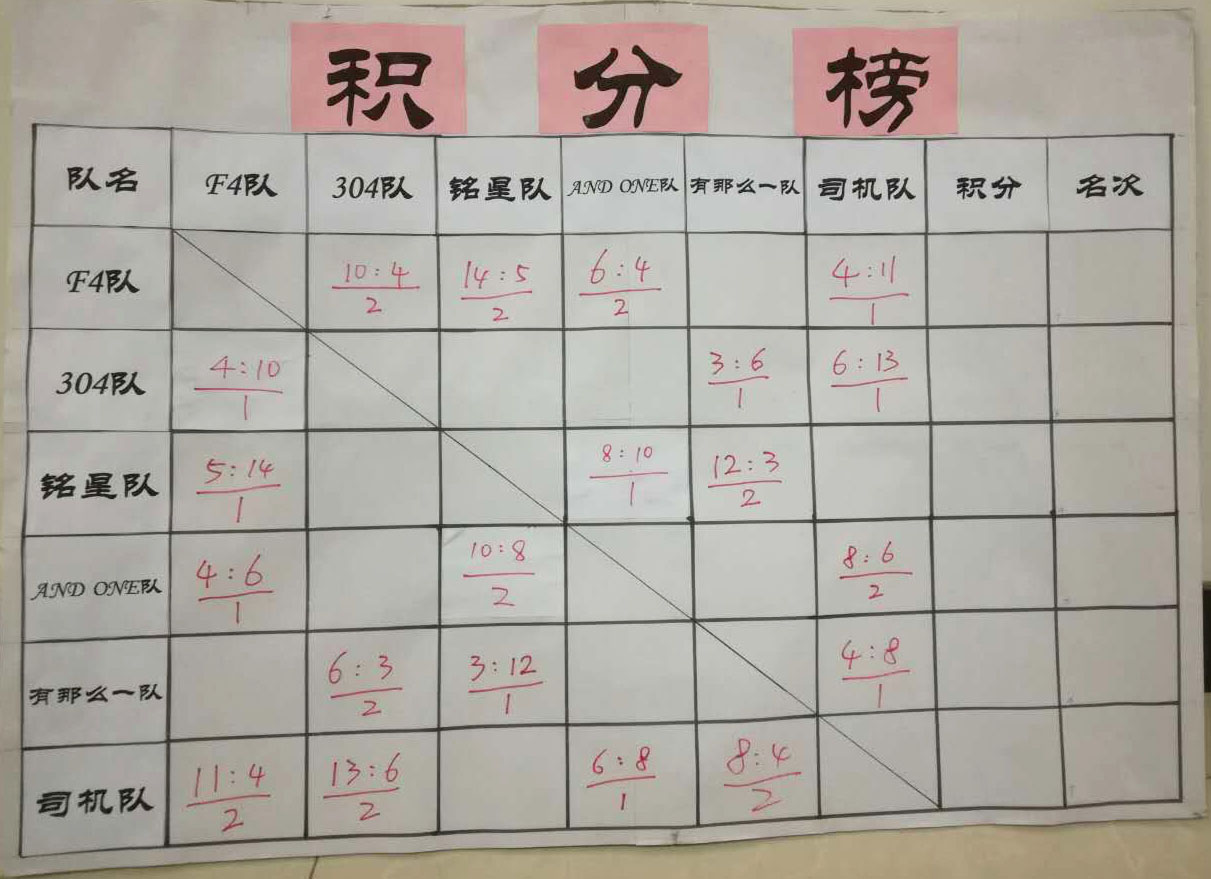 积分榜
队名 F4队 304队 铭星队 AND ONE队 有那么一队 司机队 积分 名次
F4队 10:4/2 14:5/2 6:4/2 4:11/1
304队 4:10/1 3:6/1 6:13/1
铭星队 5:14/1 8:10/1 12:3/2
AND ONE队 4:6/1 10:8/2 8:6/2
有那么一队 6:3/2 3:12/1 4:8/1
司机队 11:4/2 13:6/2 6:8/1 8:4/2